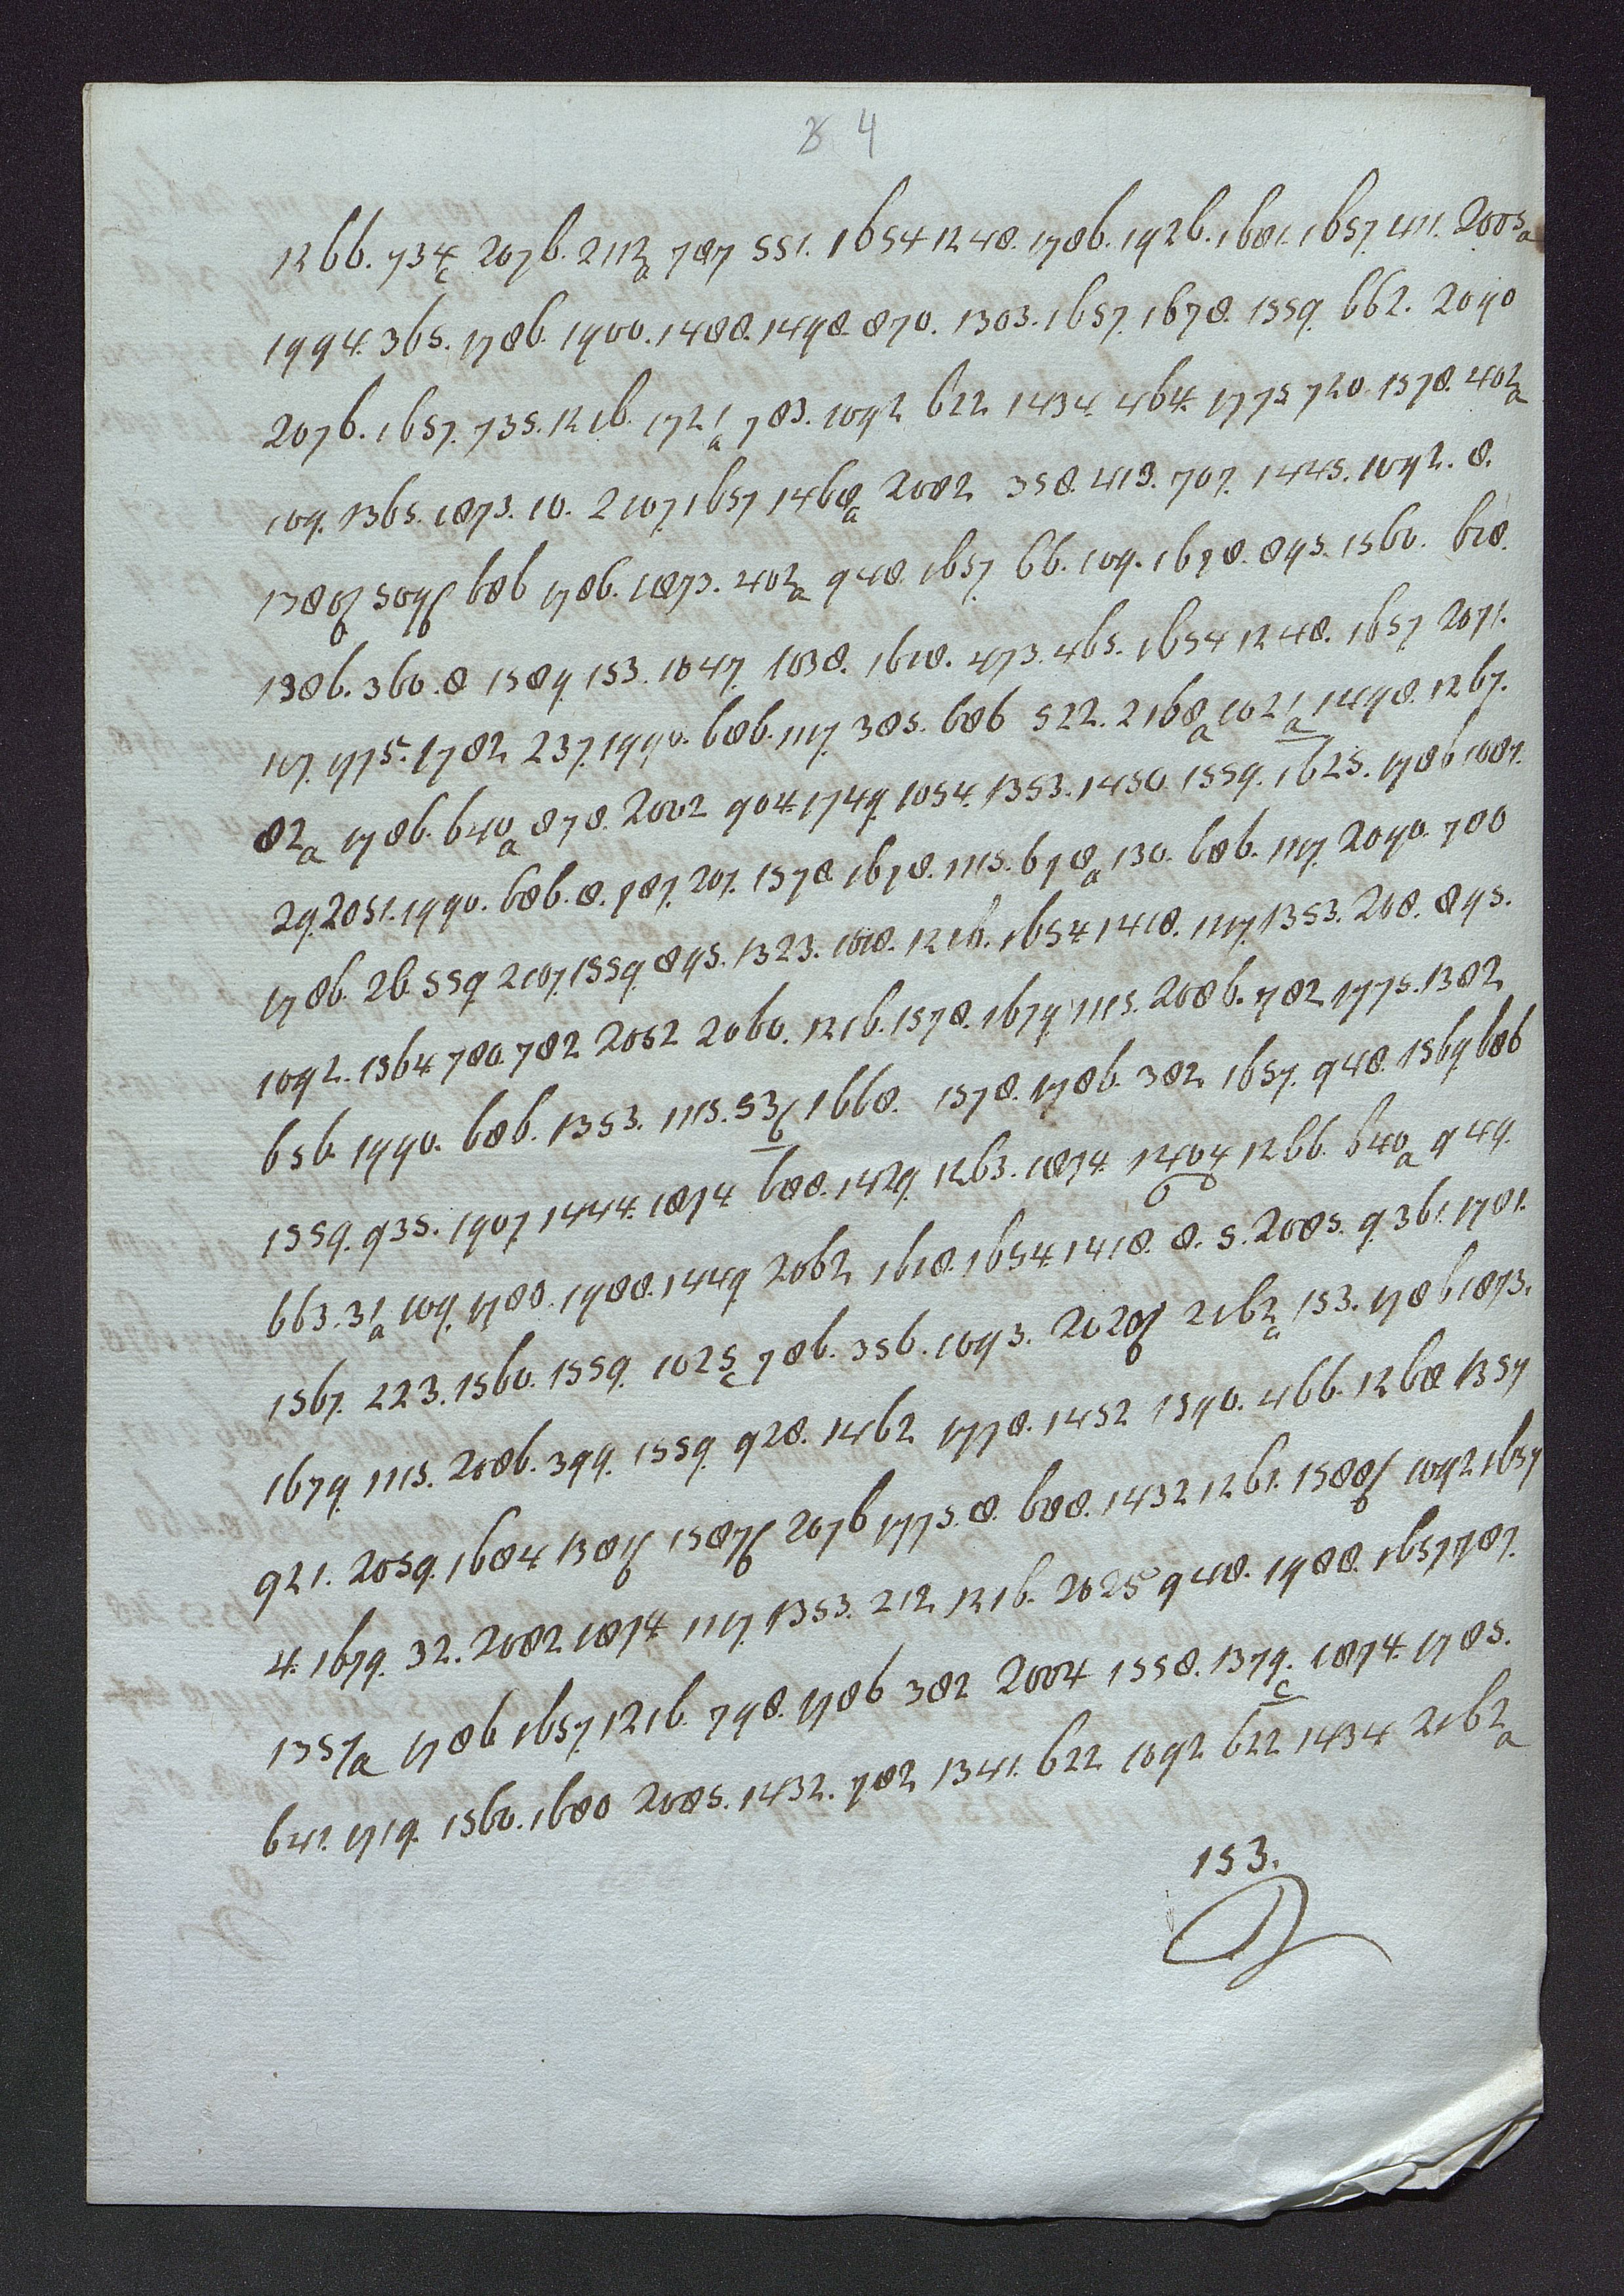 4
1266. 734c 2076. 2112a 787 551. 1654 1248. 1786. 1926. 1681. 1657. 411. 2005a
1994. 365. 1786. 1900. 1488. 1498. 870. 1303. 1657. 1678. 1559. 662. 2090
2076. 1657. 735. 1216. 1721a 783. 1092 622 1434 464. 1775 720. 1578. 402a
109. 1365. 1873. 10. 2107. 1657 1468a 2082 358. 413. 707. 1445. 1092. 8.
1380b 509b 686 1786. 1873. 402a 948. 1657. 66. 109. 1678. 895. 1560. 618.
1386. 360. 8 1589. 153. 1047. 1038. 1618. 473. 465. 1654 1248. 1657 2071.
117. 1775. 1782 237. 1990. 686. 1117. 385. 686 522. 2168a 1021a 1498. 1267.
82a 1786. 640a 878. 2002 904. 1749. 1054. 1353. 1450. 1559. 1625. 1786 1087.
29. 2051. 1990. 686. 8. 787. 207. 1578. 1678. 1115. 678a 130. 686. 1117. 2090. 700
1786. 26. 559 2107. 1559. 895. 1323. 1018. 1216. 1654 1418. 1117. 1353. 208. 895.
1092. 1364 780. 782 2052 2060. 1216. 1578. 1679. 1115. 2086. 782 1775. 1382
656. 1990. 686. 1353. 1115. 53b 1668. 1578. 1786. 382 1657. 948. 1569. 686
1559. 935. 1907 1444. 1874 688. 1429. 1263. 1874. 1266. 640a 949.
663. 31a 109. 1780. 1988. 1449. 2062 1618. 1654. 1418. 8. 5. 2085. 9. 361. 1781.
1567. 223. 1560. 1559. 1025c 786. 356. 1093. 2020b 2162a 153. 1786 1873.
1679. 1115. 2086. 399. 1559. 928. 1462 1778. 1452 1590. 466. 1268 1357
921. 2059. 1684 1381b 1587b 2076 1775. 8. 688. 1432 1261. 1588b 1092 1657
4. 1679. 32. 2082 1874 1117. 1353. 212. 1216. 2025 948. 1988. 1657 787.
1357a 1786 1657. 1216. 798. 1786 382 2004 1558. 1379c. 1874. 1785.
641. 1719. 1560. 1680 2085. 1432. 782 1341. 622 1092 622 1434 2162a
153.